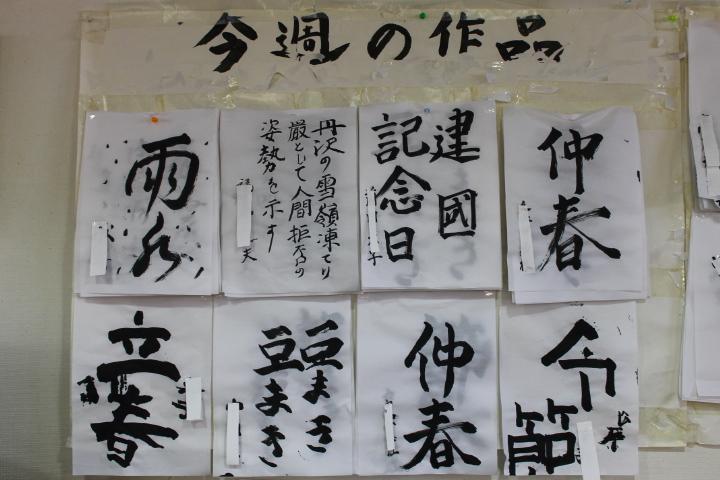 今週の作品
雨水
丹沢の雪嶺凍てり
厳として人間拒否の
姿勢を示す
建國
記念日
仲春
立春
豆まき
豆まき
仲春
令節